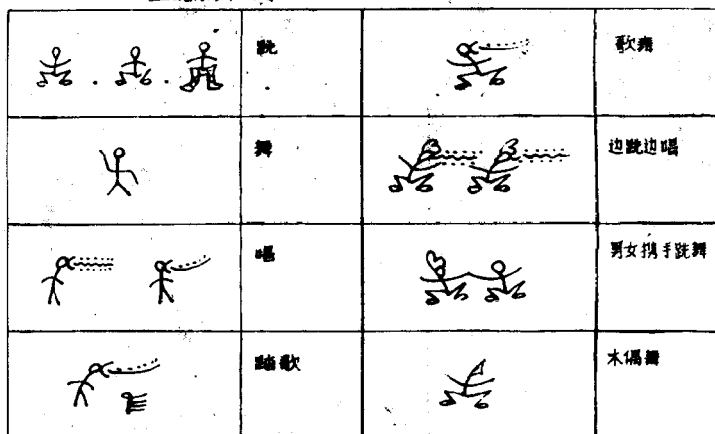 跳
歌舞
舞
边跳边唱
唱
男女携手跳舞
踏歌
木偶舞